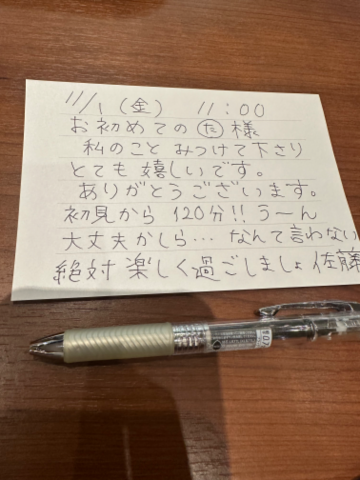 11/1 (金) 11:00
お初めての た 様
私のこと みつけて下さり
とても 嬉しいです。
ありがとうございます。
初見から 120分!! うーん
大丈夫かしら… なんて言わない
絶対 楽しく過ごしましょ 佐藤